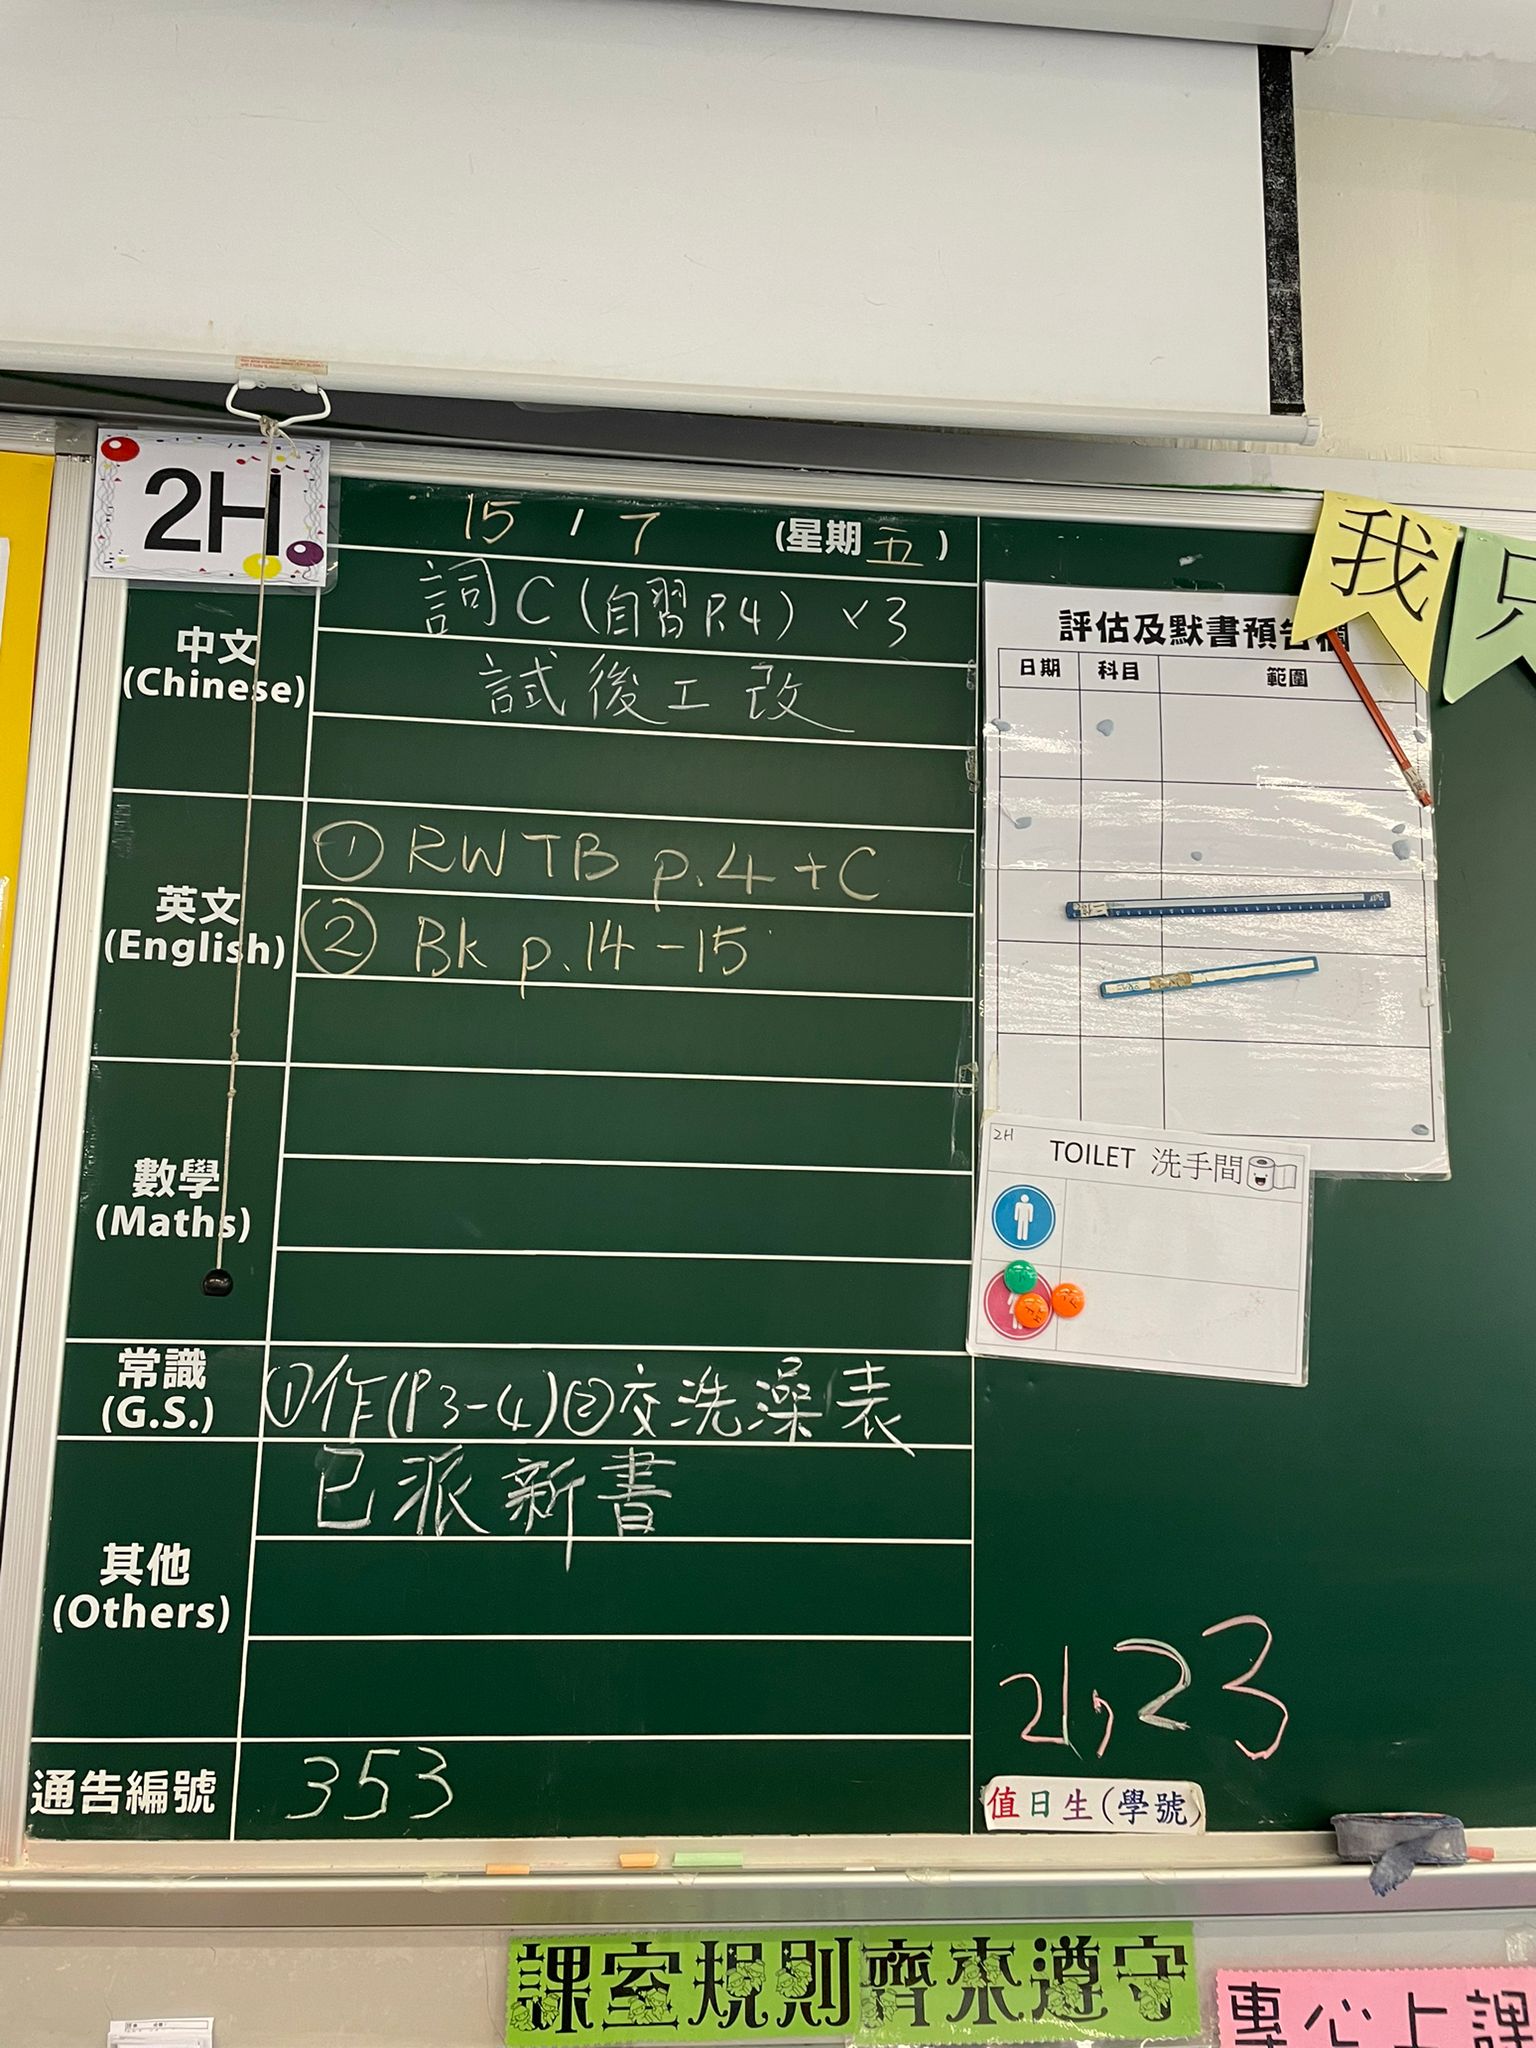 2H
15 / 7 (星期五)
中文
(Chinese)
詞C(自習P.4) x3
試後工改
英文
(English)
① RWTB p.4 + C
② Bk p.14-15
數學
(Maths)
常識
(G.S.)
①作(P3-4)②交洗澡表
其他
(Others)
已派新書
通告編號
353
我只
評估及默書預告欄
日期 科目 範圍
2H
TOILET 洗手間
21,23
值日生(學號)
課室規則齊來遵守
專心上課